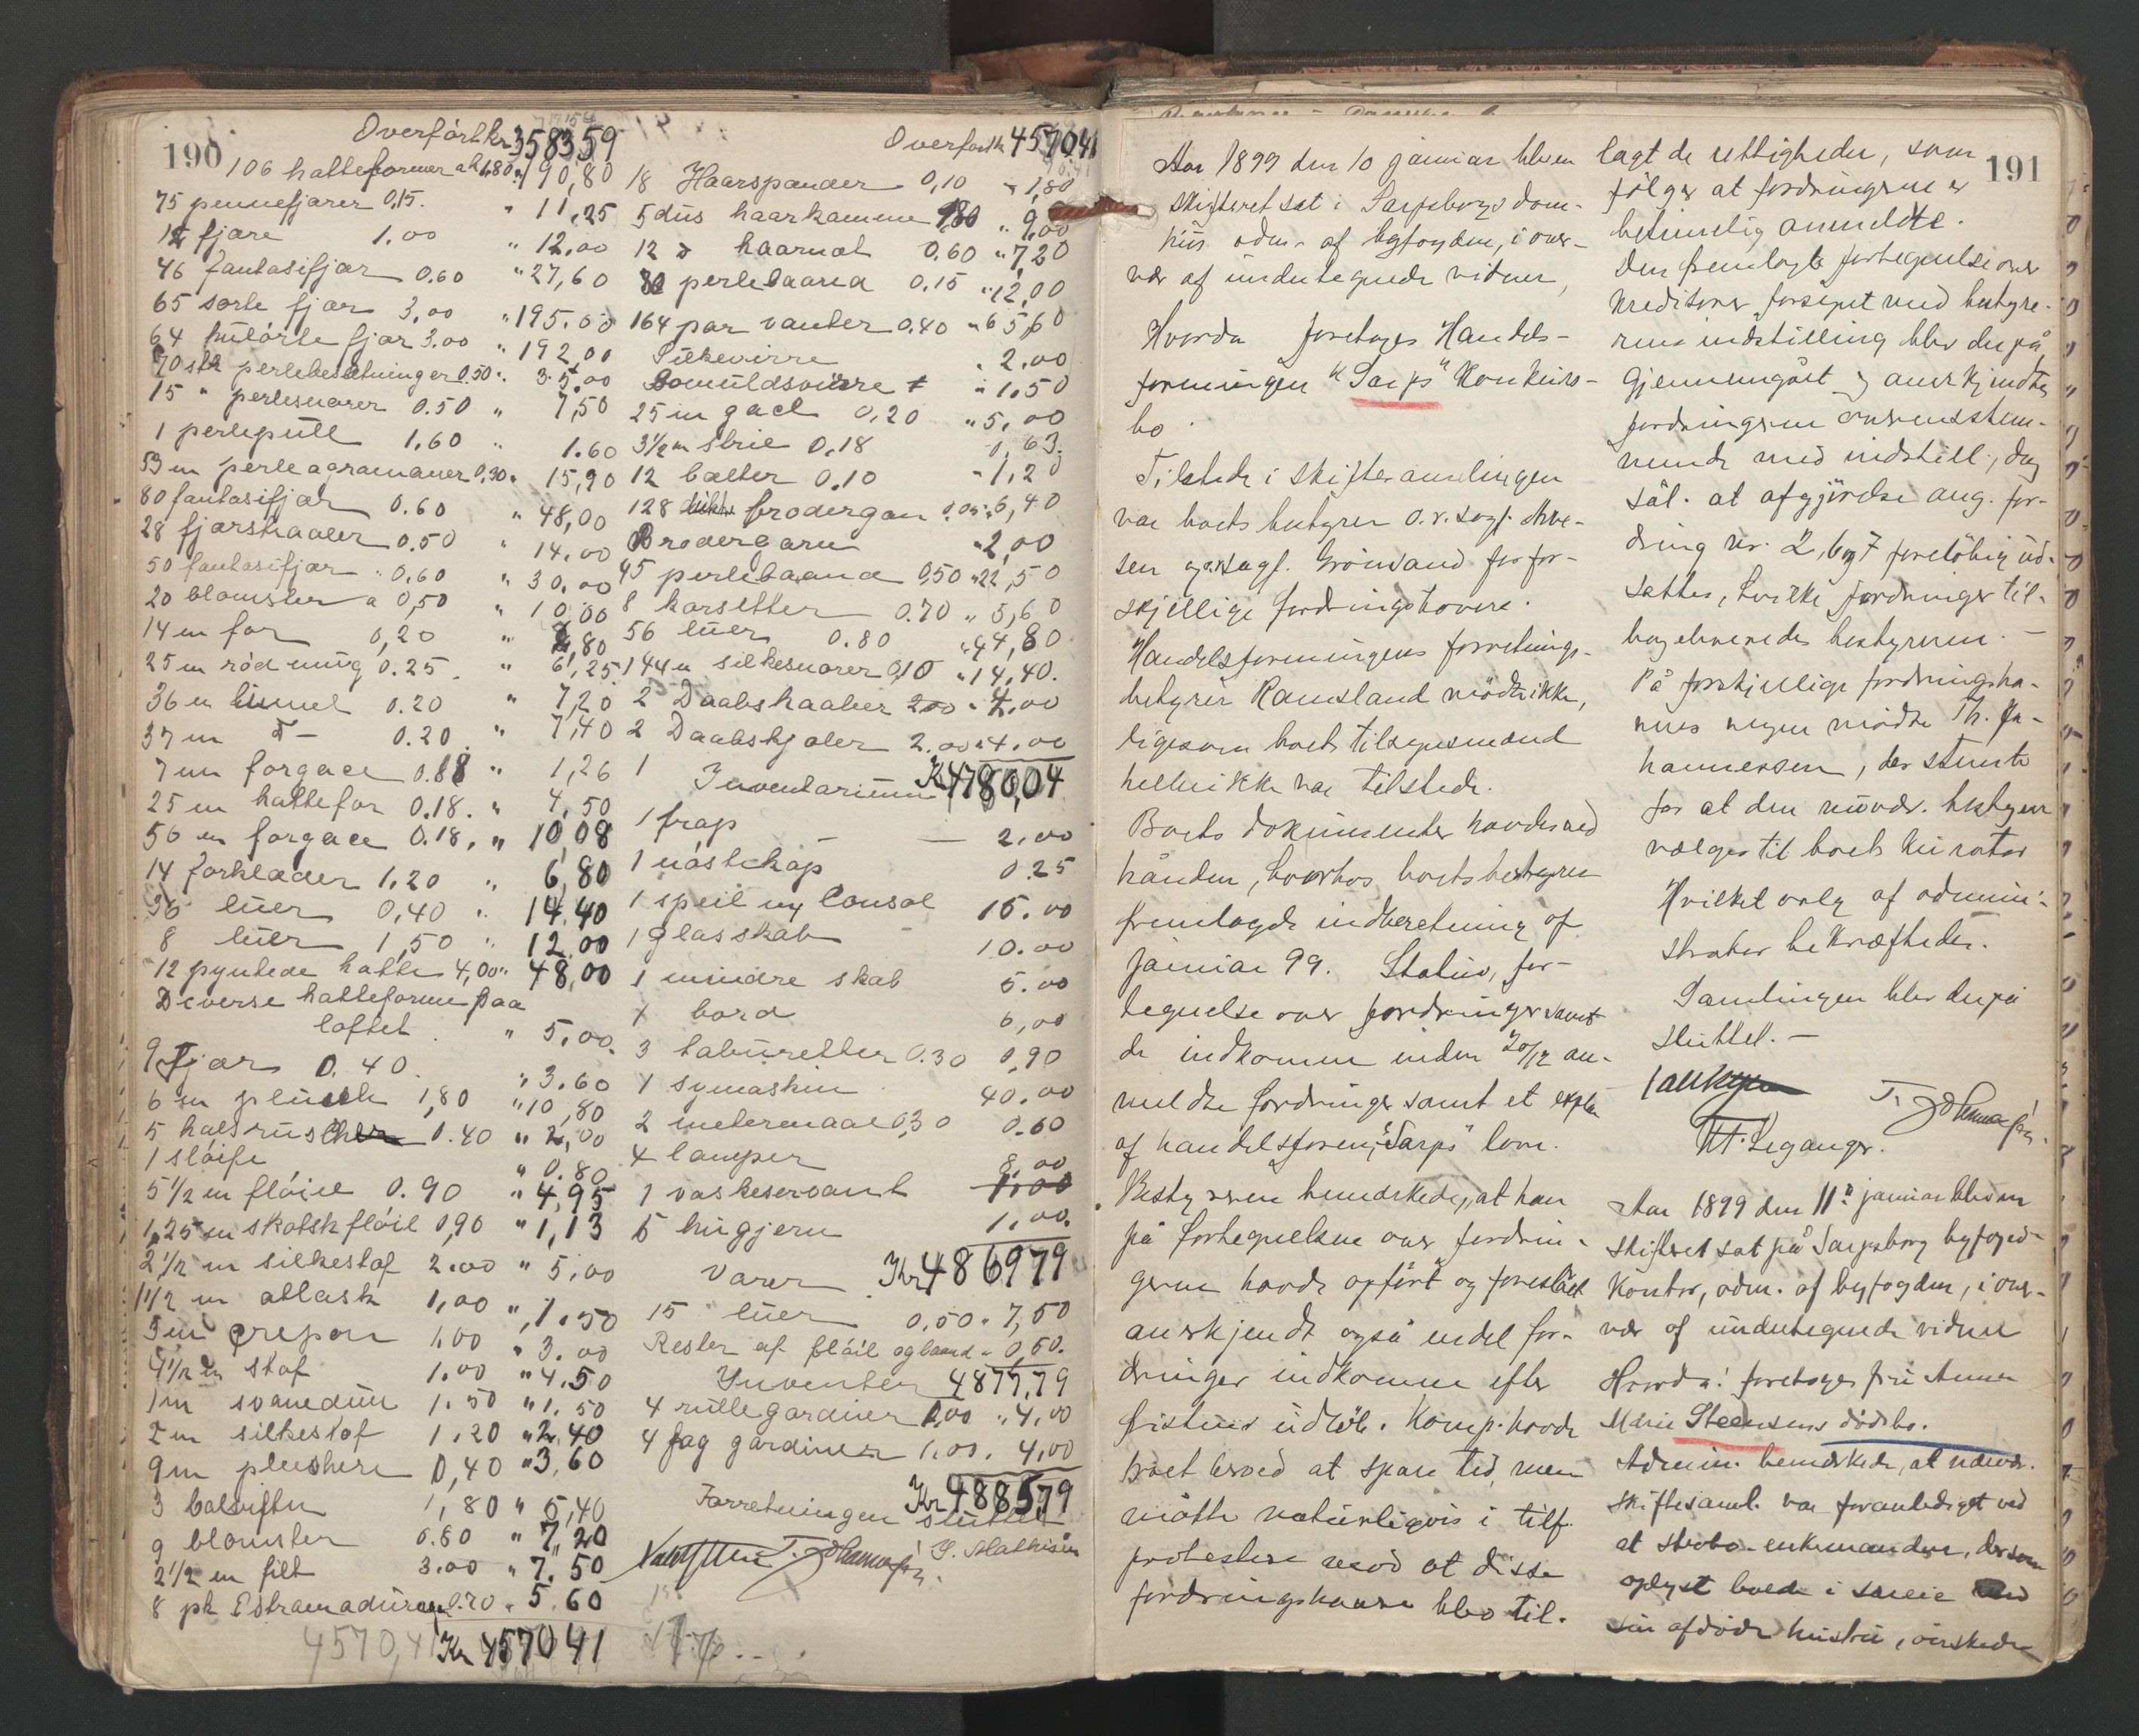 190
Overført kr 3583 59
106 hatteformer a kr 1,80 " 190,80
75 pennefjærer 0,15. " 11,25
12 fjære 1.00 " 12.00
46 fantasifjær 0.60 " 27,60
65 sorte fjær 3,00 " 195.00
64 kulørte fjær 3.00 " 192,00
70 stk perlebesætninger 0.50 " 35,00
15 " perlesnorer 0.50 " 7,50
1 perlepull 1,60 " 1.60
53 m perleagramaner 0,30 " 15,90
80 fantasifjær 0.60 " 48,00
28 fjærskaaler 0.50 " 14.00
50 fantasifjær 0,60 " 30.00
20 blomster a 0,50 " 10,00
14 m for 0,20 " 2,80
25 m rød 0.25 " 6,25
36 m 0.20 " 7,20
37 m - 0.20 " 7,40
7 m forgace 0.18 " 1,26
25 m hattefor 0.18. " 4,50
56 m forgace 0.18, " 10,08
14 forklæder 1,20 " 6,80
36 luer 0,40 " 14.40
8 luer 1,50 " 12.00
12 pyntede hatte 4,00 " 48,00
Diverse hatteforme paa
loftet " 5,00.
9 fjær 0.40. " 3.60
6 m plusch 1,80 " 10,80
5 halsruscher 0.40 " 2,00
1 sløife " 0.80
5 1/2 m fløiel 0.90 " 4,95
1,25 m skotsk fløiel 0,90 " 1,13
2 1/2 m silkestof 2.00 " 5,00
1 1/2 m atlask 1,00 " 1.50
3 m crepon 1.00 " 3.00
4 1/2 m stof 1.00 " 4.50
1 m svanedun 1.50 " 1.50
2 m silkestof 1.20 " 2,40
9 m 0,40 " 3,60
3 balvifter 1,80 " 5,40
9 blomster 0.80 " 7,20
2 1/2 m filt 3.00 " 7.50
8 pk Estramadura 0.70 " 5.60
4570,41 Kr 4570 41
Overført kr 4570 41
18 Haarspænder 0,10 " 1,80
5 dus haarkamme 1,80 " 9,00
12 d haarnæt 0,60 " 7,20
80 perlebaand 0,15 " 12,00
164 par vanter 0,40 " 65,60
Silkevirre " 2.00
Bomuldsvirre " 1.50
25 m gace 0,20 " 5,00
3 1/2 m strie 0,18 0,63
12 bælter 0.10 " 1,20
128 dukker brodergarn 0,05 " 6,40
Brodergarn " 2,00
45 perlebaand 0,50 " 22,50
8 korsetter 0.70 " 5,60
56 luer 0.80 " 44,80
144 m silkesnorer 0,10 " 14,40.
2 Daabskaaber 2.00 " 4.00
2 Daabskjoler 2.00 " 4.00
1 Inventarium Kr 4780,04
1 trap — 2.00
1 0.25
1 speil og Consol 15.00
1 glasskab - 10.00
1 mindre skab 5.00
1 bord 6,00
3 taburetter 0.30 0,90
1 symaskin 40.00
2 metermaal 0,30 0.60
4 lamper 8,00
1 vaskeservant 1.00
5 1.00.
Varer Kr 4869 79
15 luer 0,50 " 7,50
Rester af fløiel og baand " 0,50.
Inventar 4877,79
4 rullegardiner 1,00 " 4,00
4 fag gardiner 1,00. 4,00
Kr 4885,79
Forretningen sluttet
T. Johannesen S. Mathisen
191
Aar 1899 den 10 januar blev en
skifteret sat i Sarpsborgs dom-
hus adm. af byfogden, i over-
vær af undertegnede vidner,
Hvorda foretoges Handels-
foreningen "Sarps" Konkurs-
bo.
Tilstede i skiftesamlingen
var boets bestyrer o.r.sagf.
sen og o.r.sagf. Grønsand for for-
skjellige fordringshavere.
Handelsforeningens forretnings-
bestyrer Ramsland mødte ikke,
ligesom boets tilsynsmænd
heller ikke var tilstede.
Boets dokumenter havdes ved
hånden, hvorhos boets bestyrer
fremlagde indberetning af
januar 99. Status, for-
tegnelse over fordringer samt
de indkomne inden 20/12 an-
meldte fordringer samt et expl.
af handelsforen. "Sarps" love.
Bestyreren bemærkede, at han
på fortegnelsen over fordrin-
gerne havde opført og foreslået
anerkjendt også endel for-
dringer indkomne efter
fristens udløb. Komp. havde
troet herved at spare tid, men
måtte naturligvis i tilf.
protestere mod at disse
fordringshavere blev til-
lagt de rettigheder, som
følger at fordringerne er
betimelig anmeldte.
Den fremlagte fortegnelse over
kreditorer forsynet med bestyre-
rens indstilling blev derpå
gjennemgået og anerkjendtes
fordringerne overensstem-
mende med indstill., dog
sål. at afgjørelse ang. for-
dring nr. 2, 6 og 7 foreløbig ud-
sattes, hvilke fordringer til-
bageleveredes bestyreren. —
På forskjellige fordringsha-
veres vegne mødte Th. Jo-
hannessen, der stemte
for at den nuvær. bestyrer
vælges til boets kurator
Hvilket valg af admini-
strator bekræftedes.
Samlingen blev derpå
sluttet. —
T. Johannesen.
Leganger.
Aar 1899 den 11te januar blev en
skifteret sat på Sarpsborg byfoged-
kontor, adm. af byfogden, i over-
vær af undertegnede vidner
Hvorda: foretoges fru Anna
Marie Steensens dødsbo.
Admin. bemærkede, at nærvær.
skiftesaml. var foranlediget ved
at enkemanden, der som
oplyst havde i særeie med
sin afdøde hustru, ønskede